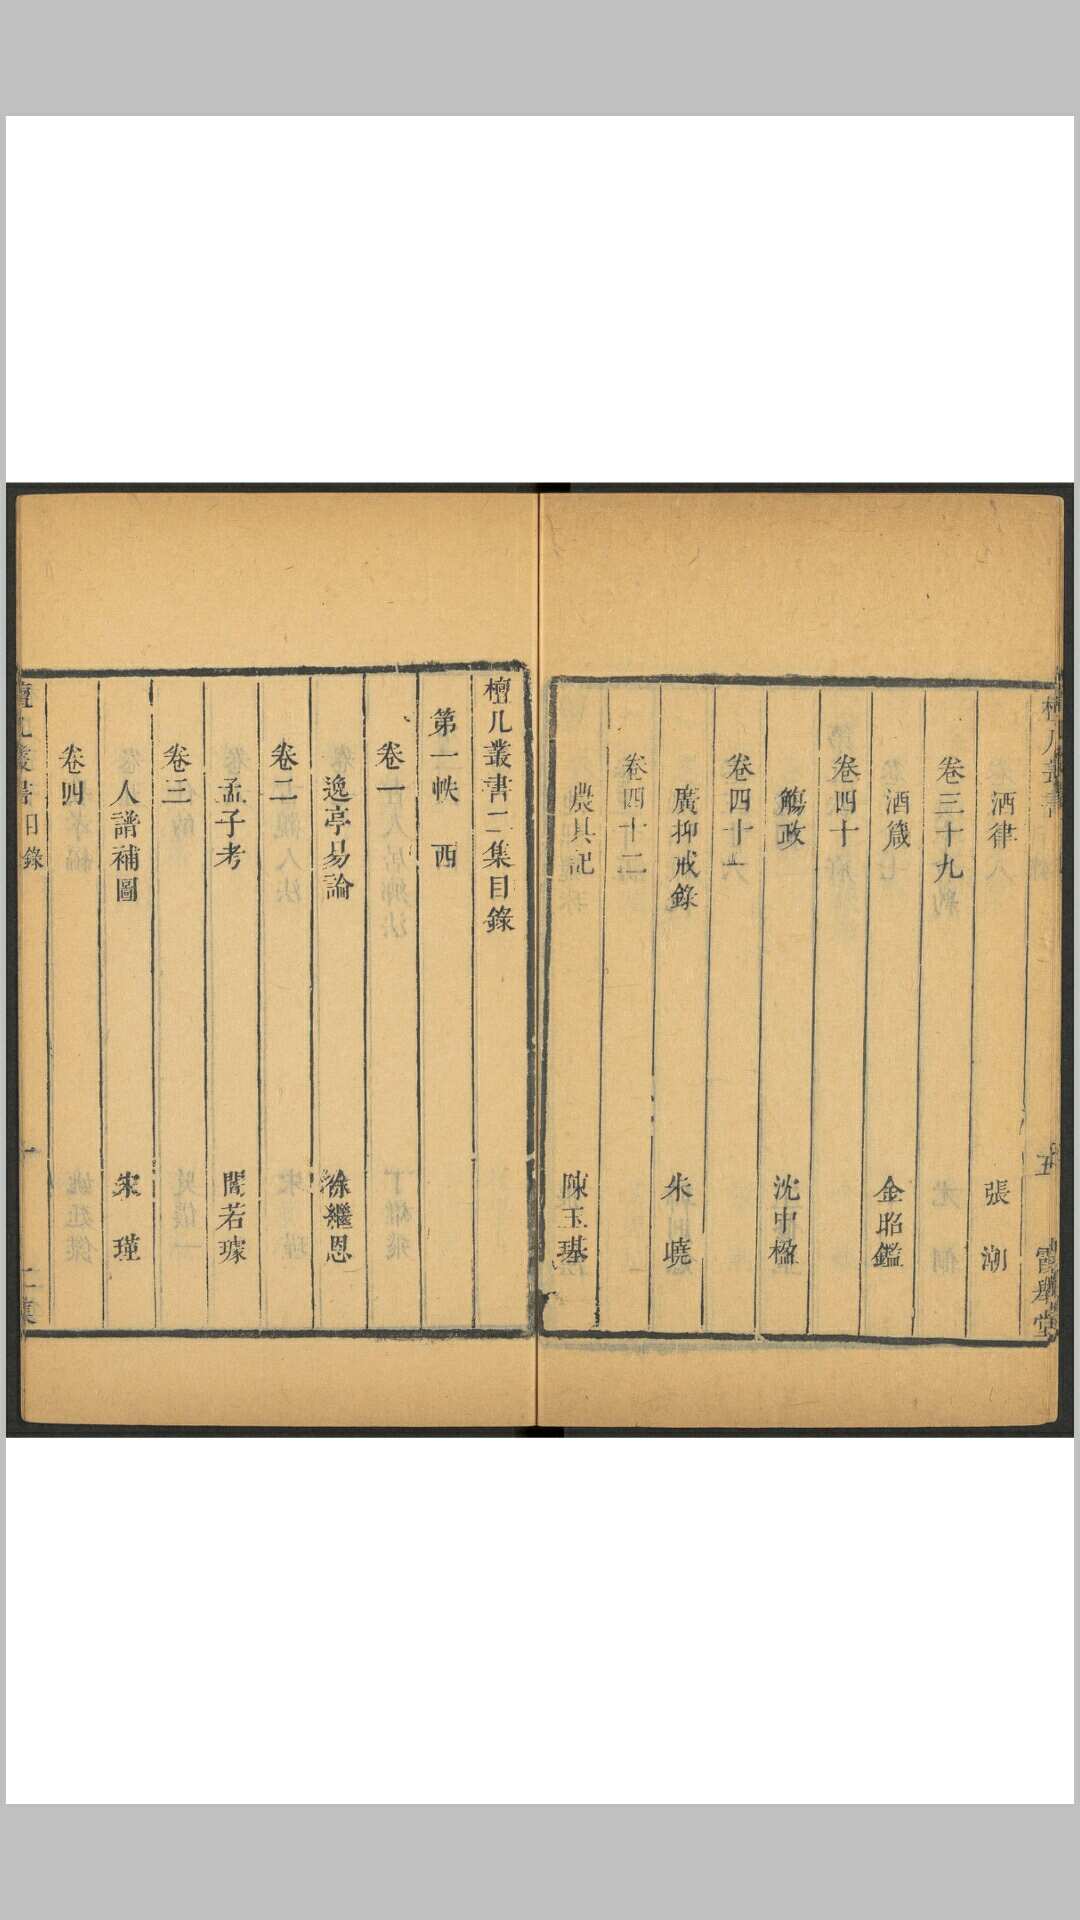 酒律 張潮
卷三十九
酒箴 金昭鑑
卷四十
觴政 沈中楹
卷四十一
廣抑戒錄 朱曉
卷四十二
農具記 陳玉璂
檀几叢書二集目錄
第一帙 西
卷一
逸亭易論 徐繼恩
卷二
孟子考 閻若璩
卷三
人譜補圖 宋瑾
卷四
檀几叢書目錄 一 二集